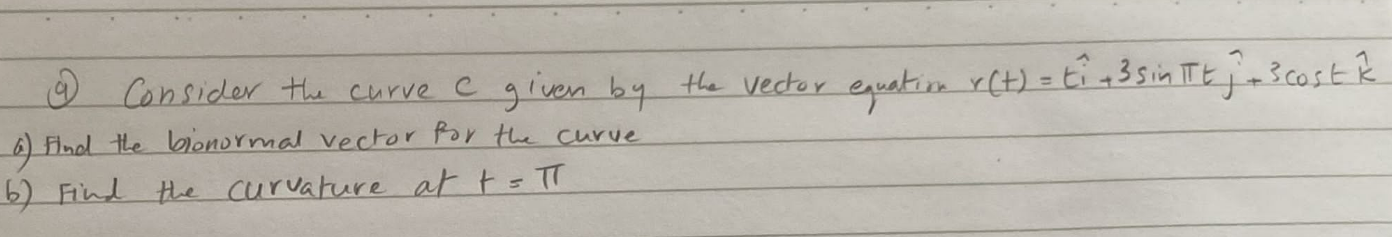 9) Consider the curve C given by the vector equation r(t) = tî + 3 sin πt ĵ + 3 cos t k̂
a) Find the bionormal vector for the curve
b) Find the curvature at t = π